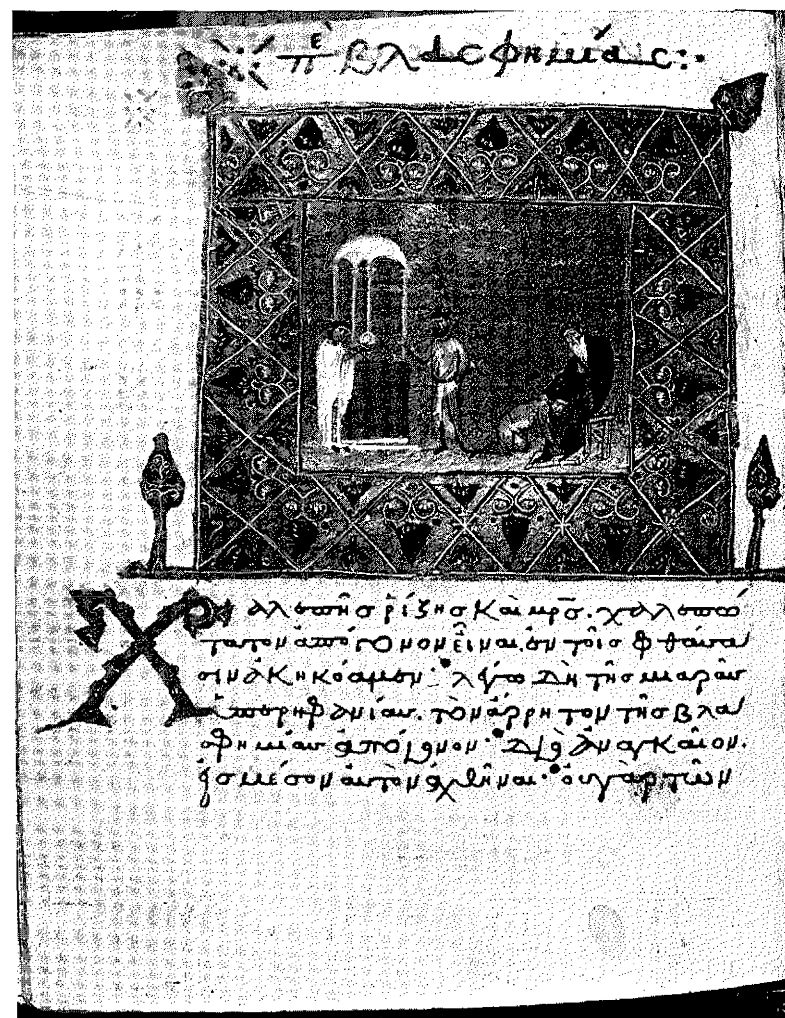 πε βλασφημίας:·
Χαλεπῆς ῥίζης καὶ μρ̅ς. χαλεπω
τατον ἀπόγονον εἶναι ἐν τοῖς φθάσα
σιν ἀκηκόαμεν· λέγω δὴ τῆς μιαρᾶς
ὑπερηφανίας. τὸν ἄρρητον τῆς βλα
σφημίας ἀπόγονον· διὸ ἀναγκαῖον.
ἐς μέσον αὐτὸν ἀχθῆναι· οὐ γὰρ τῶν